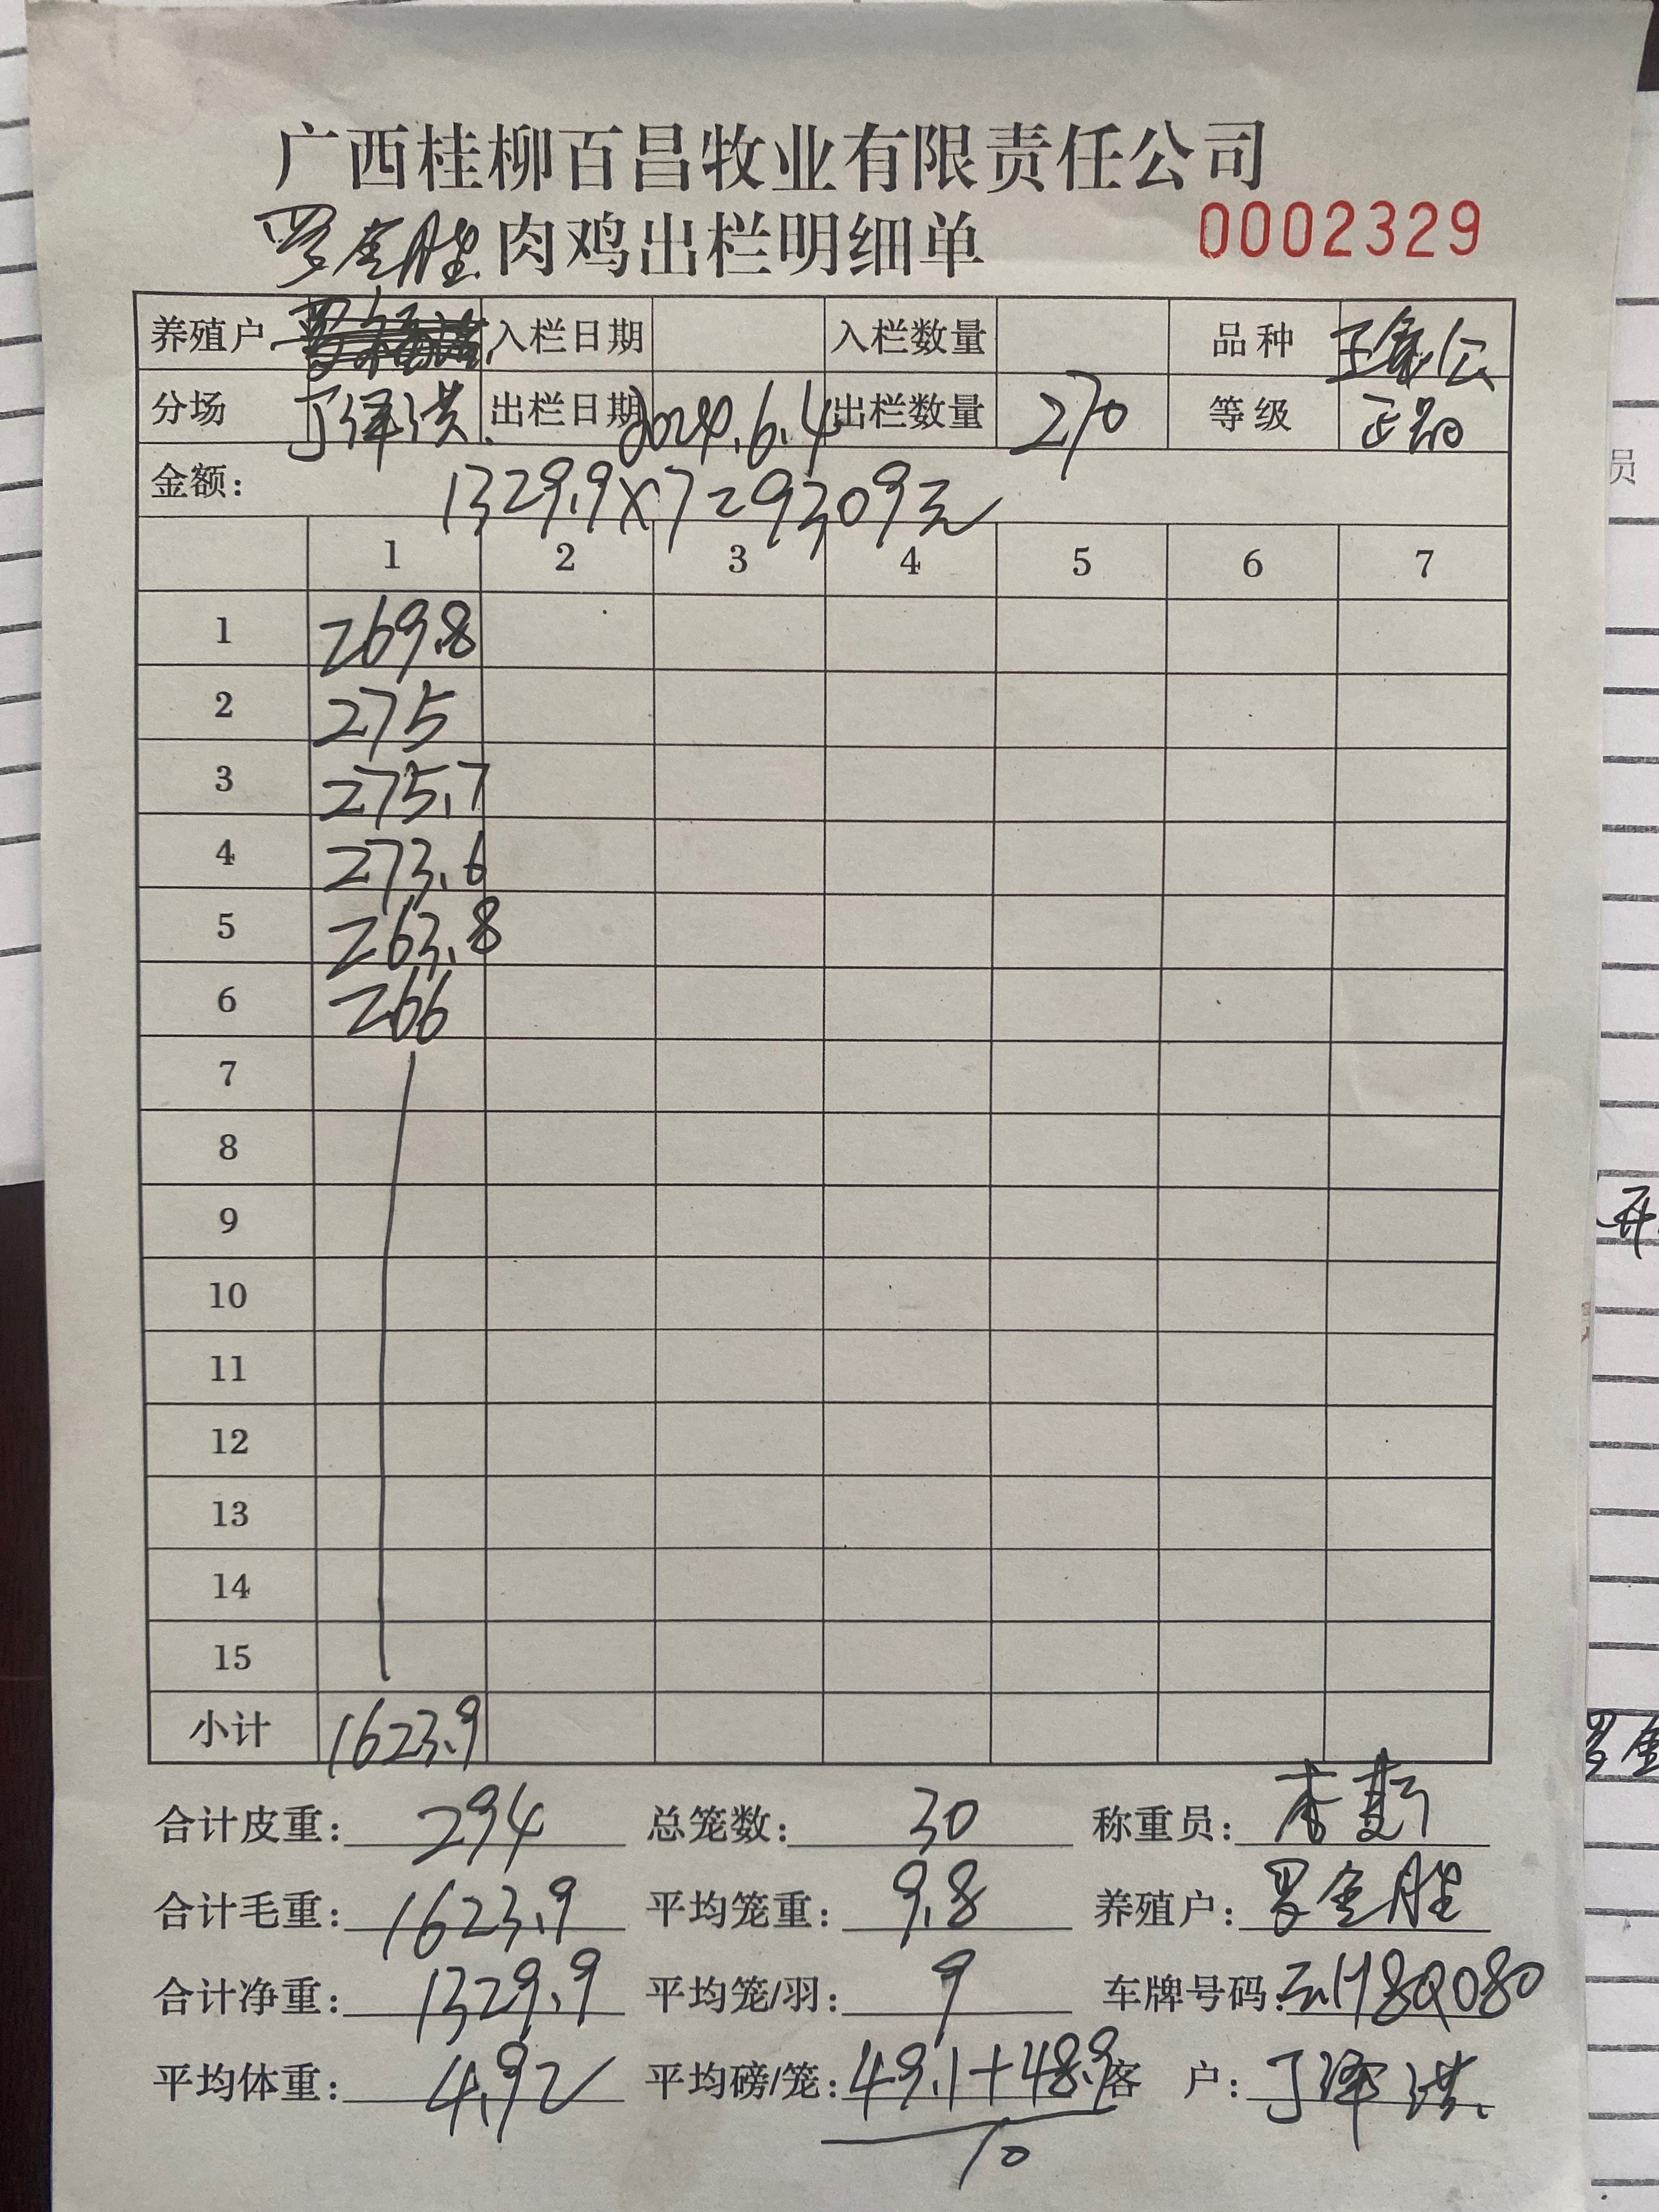 广西桂柳百昌牧业有限责任公司
罗金胜 肉鸡出栏明细单 0002329
养殖户 入栏日期 入栏数量 品种 公
分场 丁泽洪 出栏日期 2024.6.4 出栏数量 270 等级 正品
金额: 1329.9×7=9309元
1 2 3 4 5 6 7
1 269.8
2 275
3 275.7
4 273.6
5 263.8
6 266
7
8
9
10
11
12
13
14
15
小计 1623.9
合计皮重: 294 总笼数: 30 称重员: 李
合计毛重: 1623.9 平均笼重: 9.8 养殖户: 罗金胜
合计净重: 1329.9 平均笼/羽: 9 车牌号码: 云H8Q080
平均体重: 4.92 平均磅/笼: 49.1+48.9 客 户: 丁泽洪
10
员
开
罗金